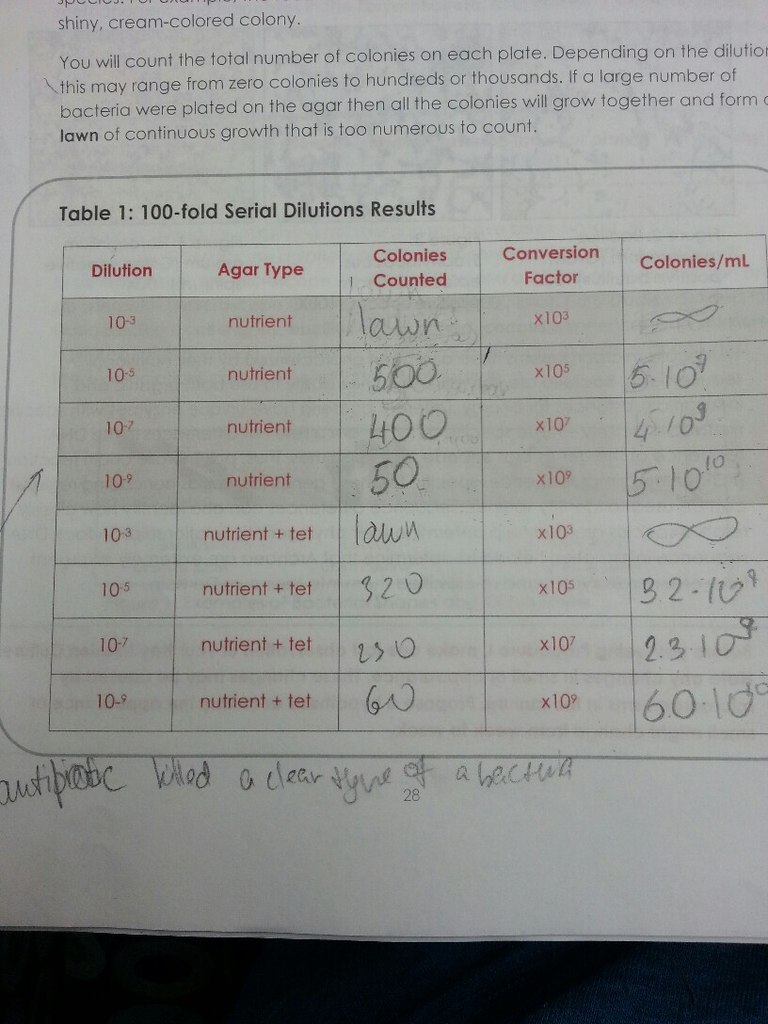 shiny, cream-colored colony.
You will count the total number of colonies on each plate. Depending on the dilution
this may range from zero colonies to hundreds or thousands. If a large number of
bacteria were plated on the agar then all the colonies will grow together and form a
lawn of continuous growth that is too numerous to count.
Table 1: 100-fold Serial Dilutions Results
Dilution Agar Type Colonies Counted Conversion Factor Colonies/mL
10⁻³ nutrient lawn x10³ ∞
10⁻⁵ nutrient 500 x10⁵ 5·10⁷
10⁻⁷ nutrient 400 x10⁷ 4·10⁹
10⁻⁹ nutrient 50 x10⁹ 5·10¹⁰
10⁻³ nutrient + tet lawn x10³ ∞
10⁻⁵ nutrient + tet 320 x10⁵ 3.2·10
10⁻⁷ nutrient + tet 230 x10⁷ 2.3·10⁹
10⁻⁹ nutrient + tet 60 x10⁹ 6.0·10¹⁰
antibiotic killed a clear type of a bacteria
28